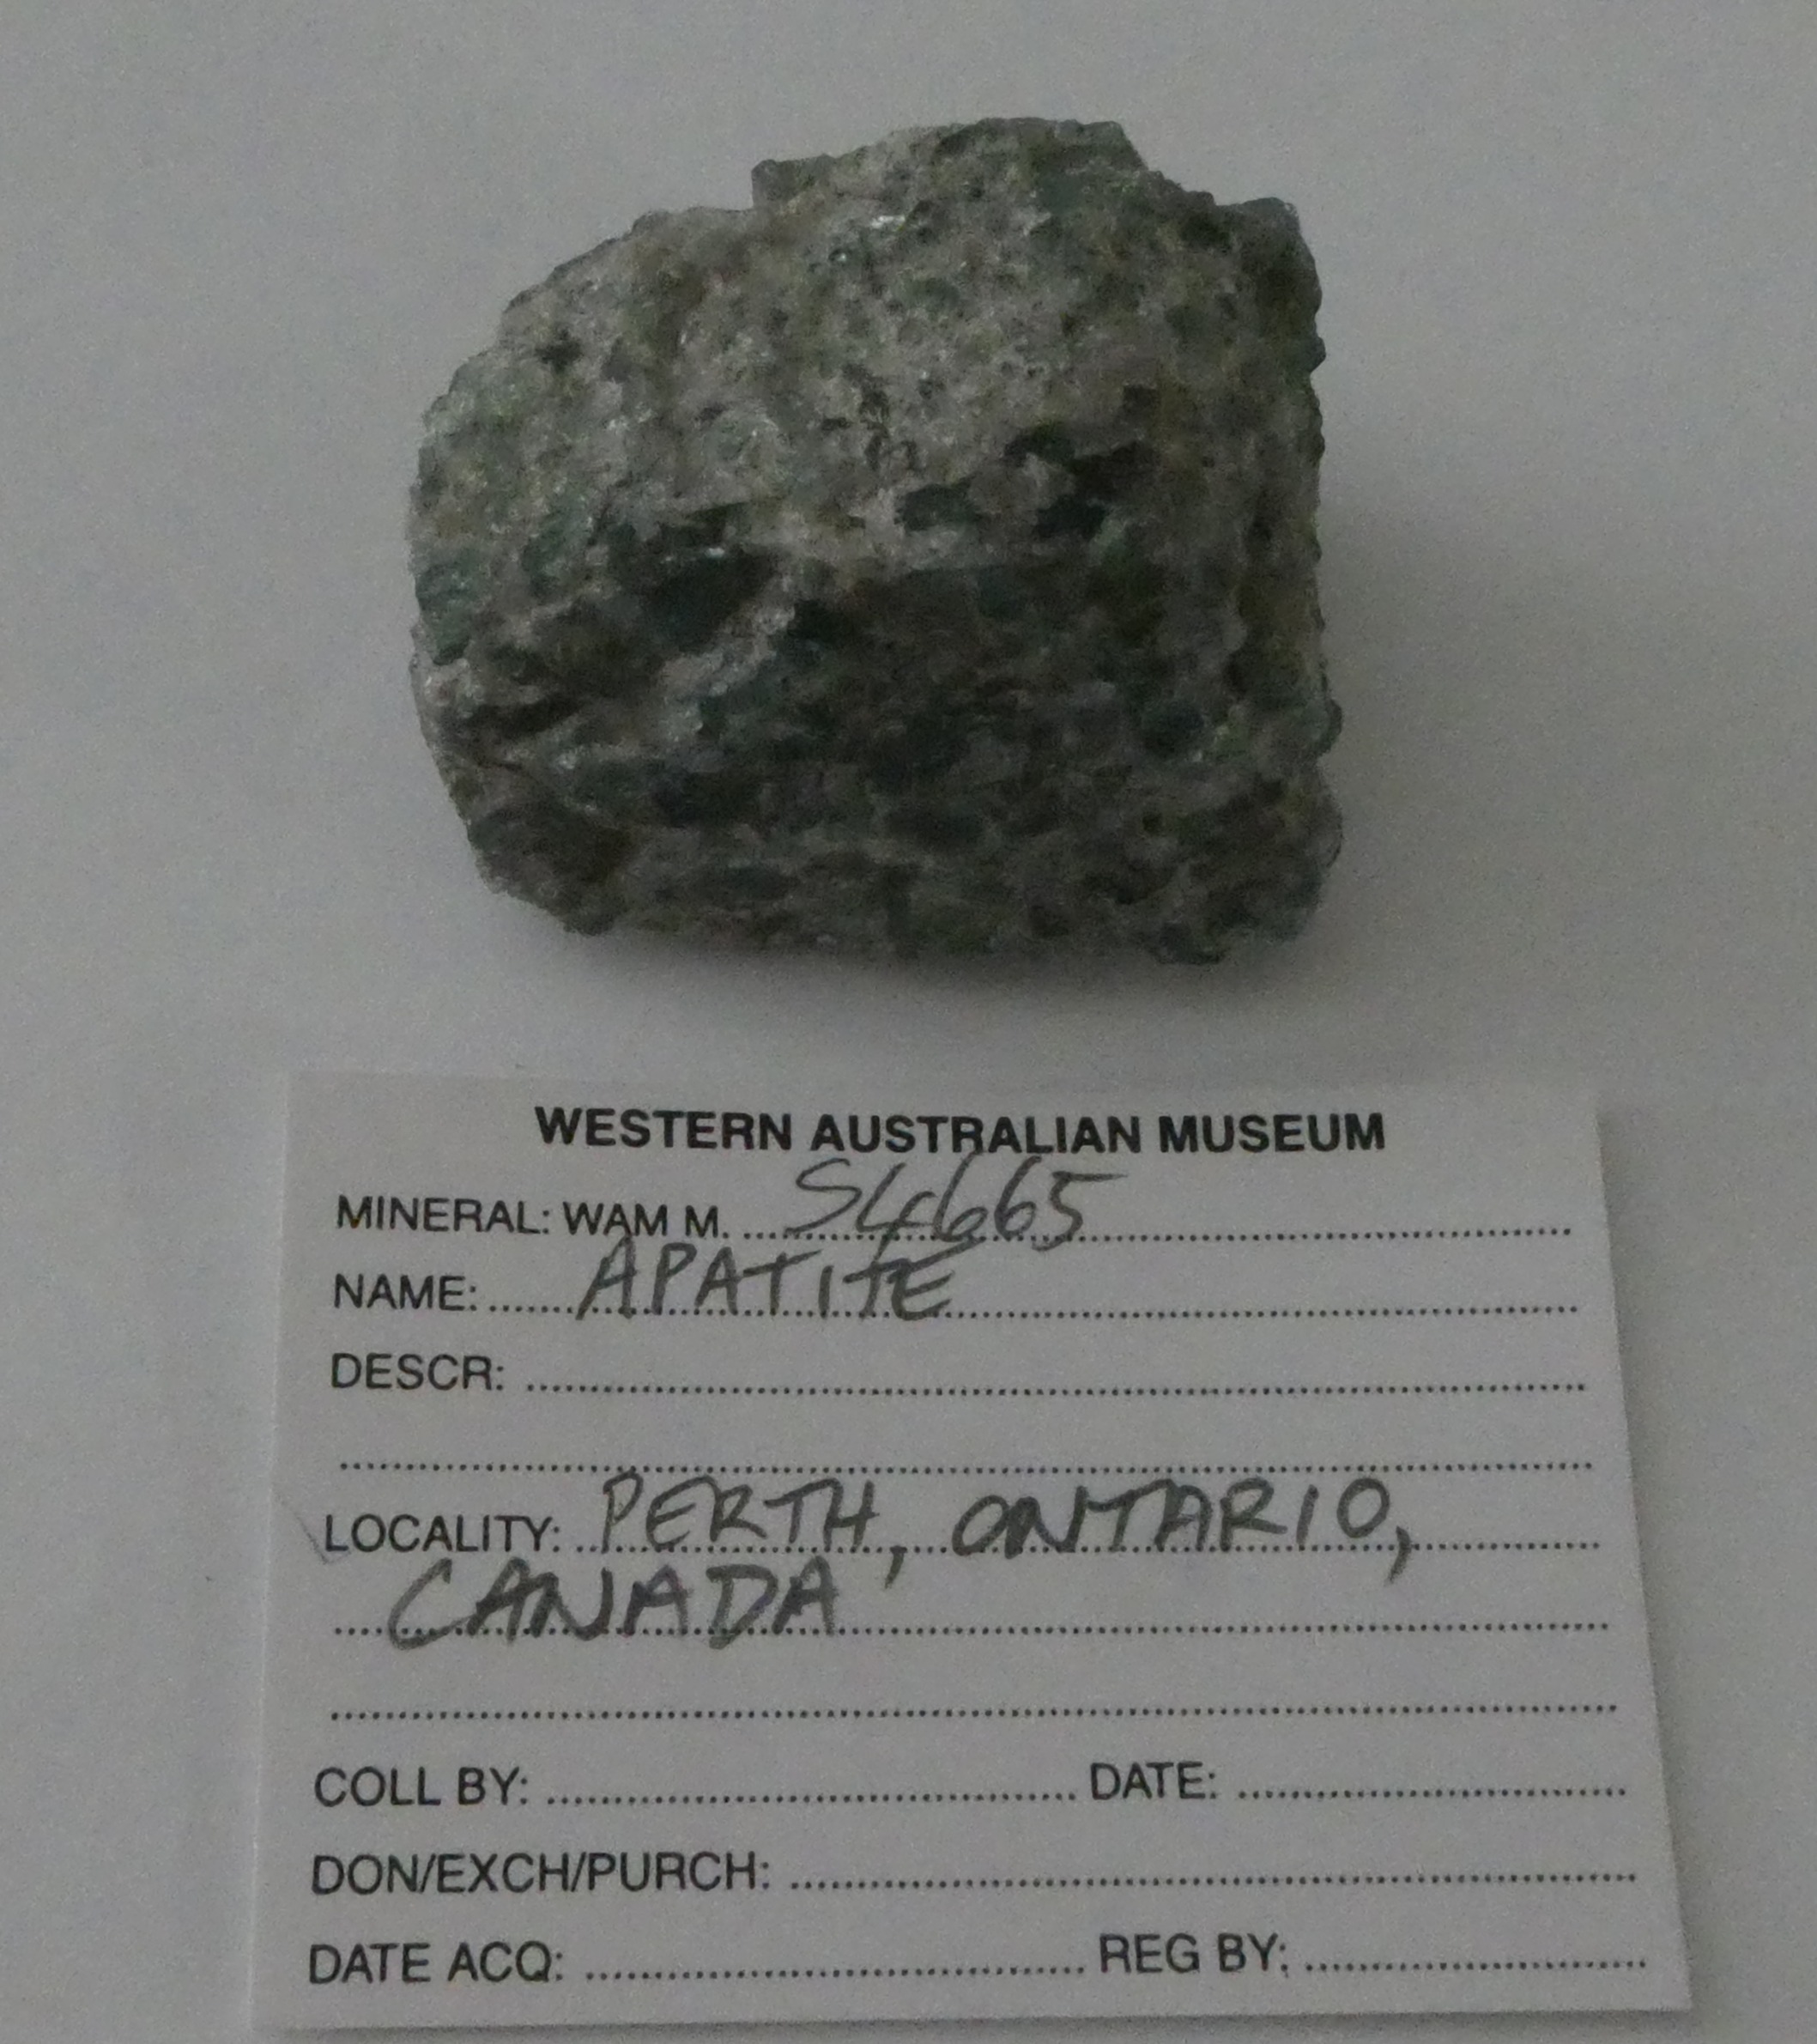 WESTERN AUSTRALIAN MUSEUM
MINERAL: WAM M. S4665
NAME: APATITE
DESCR:
LOCALITY: PERTH, ONTARIO,
CANADA
COLL BY: DATE:
DON/EXCH/PURCH:
DATE ACQ: REG BY: